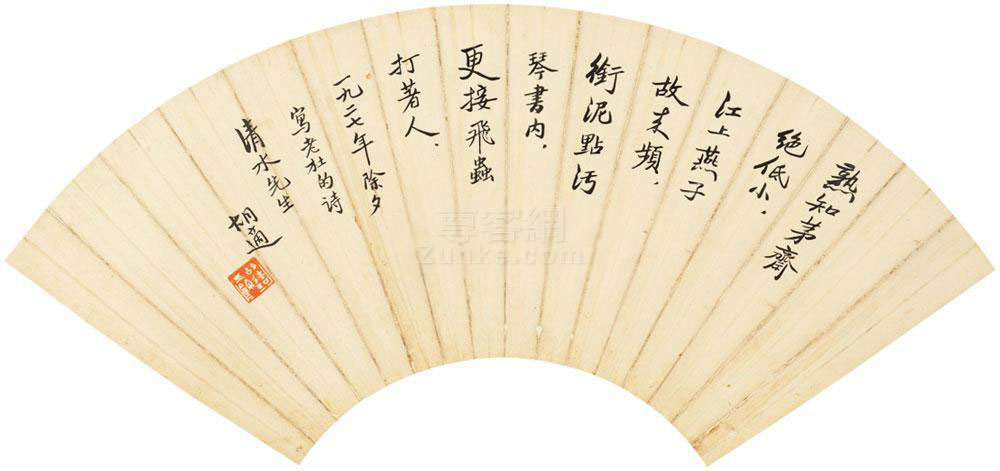 熟知茅齋
絶低小，
江上燕子
故来頻，
銜泥點汚
琴書内，
更接飛蟲
打著人．
一九二七年除夕
寫老杜的詩
清水先生
胡適
尊客網
Zunke.com